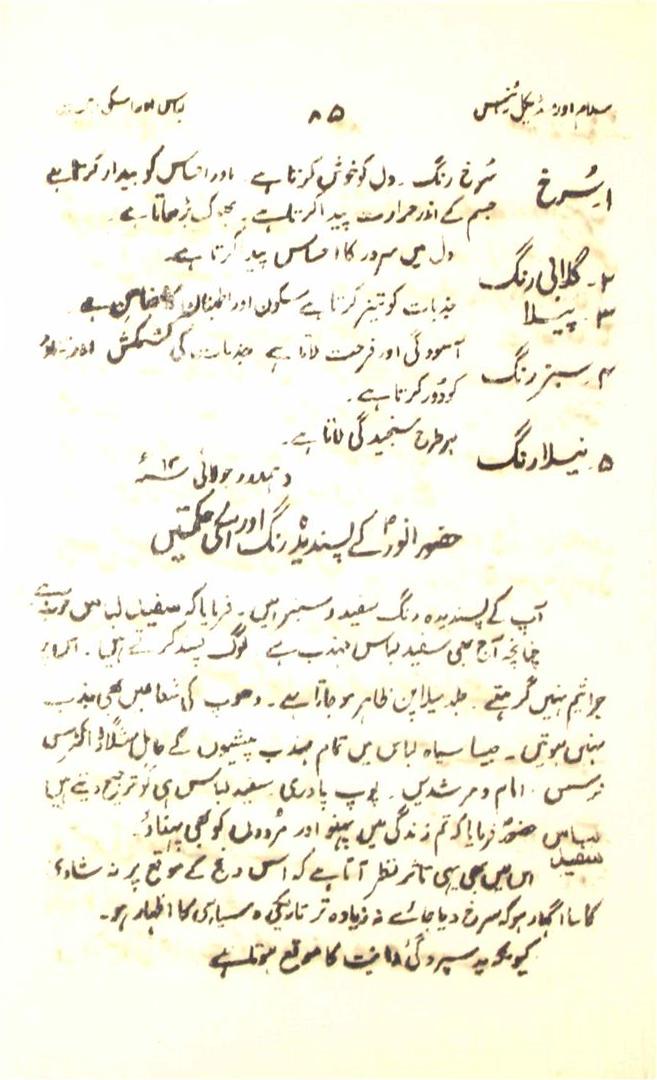 اسلام اور میڈیکل سائنس ۸۵ لباس اور اسکی
۱۔ سُرخ سُرخ رنگ۔ دل کو خوش کرتا ہے اور احساس کو بیدار کرتا ہے
جسم کے اندر حرارت پیدا کرتا ہے۔ بھوک بڑھاتا ہے۔
۲۔ گلابی رنگ دل میں سرور کا احساس پیدا کرتا ہے۔
۳۔ پیلا جذبات کو تیز کرتا ہے سکون اور اطمینان کا ضامن ہے۔
۴۔ سبز رنگ آسودگی اور فرحت لاتا ہے جذبات کی کشمکش اور
کو دُور کرتا ہے۔
۵۔ نیلا رنگ ہر طرح سنجیدگی لاتا ہے۔
ہمدرد جولائی
حضور انورؐ کے پسندیدہ رنگ اور اسکی حکمتیں
آپ کے پسندیدہ رنگ سفید و سبز ہیں۔ فرمایا کہ سفید لباس
چنانچہ آج بھی سفید لباس مہذب ہے لوگ پسند کرتے ہیں۔ اس پر
جراثیم نہیں گر ملتے۔ جلد میلا پن ظاہر ہو جاتا ہے۔ دھوپ کی شعاعیں بھی جذب
نہیں ہوتیں۔ جیسا سیاہ لباس میں تمام مہذب پیشیوں کے حامل مثلاً ڈاکٹرس
نرسس۔ امام و مرشدیں۔ پوپ پادری سفید لباس ہی کو ترجیح دیتے ہیں
سفید لباس حضورؐ فرمایا کہ تم زندگی میں پہنو اور مُردوں کو بھی پہناؤ۔
اس میں بھی یہی تاثر نظر آتا ہے کہ اس رنج کے موقع پر نہ شادی
کا سا اظہار ہو کہ سرخ دیا جائے نہ زیادہ تر تاریکی و سیاہی کا اظہار ہو۔
کیونکہ یہ سپردگی کا موقع ہوتا ہے